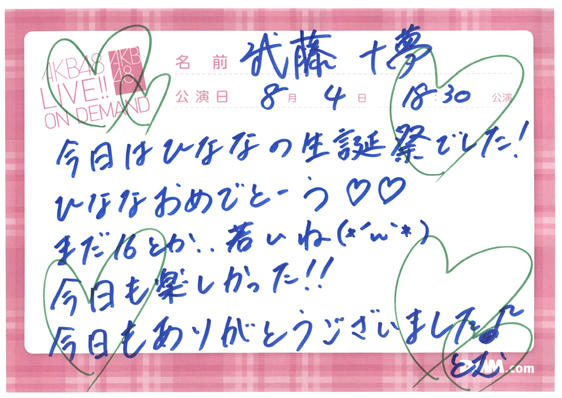 AKB48
LIVE!!
ON DEMAND
AKB48
名前 武藤 十夢
公演日 8月 4日 18:30 公演
今日はひななの生誕祭でした!
ひななおめでとーう♡♡
まだ16とか..若いね(*´ω`*)
今日も楽しかった!!
今日もありがとうございました♪
とむ
DMM.com